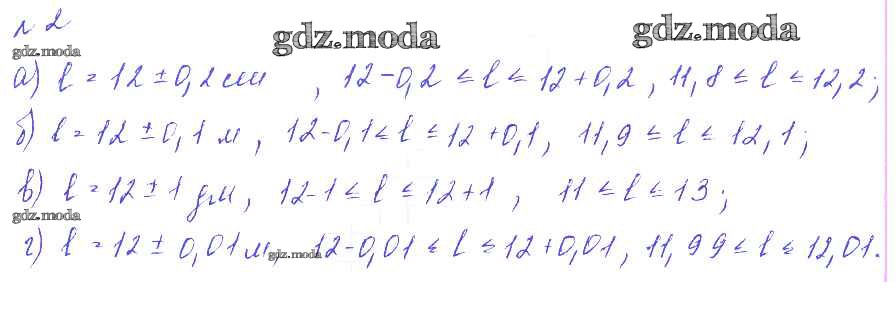 № 2
gdz.moda gdz.moda
gdz.moda
а) l = 12 ± 0,2 см , 12 - 0,2 ≤ l ≤ 12 + 0,2 , 11,8 ≤ l ≤ 12,2 ;
б) l = 12 ± 0,1 м , 12 - 0,1 ≤ l ≤ 12 + 0,1 , 11,9 ≤ l ≤ 12,1 ;
в) l = 12 ± 1 дм , 12 - 1 ≤ l ≤ 12 + 1 , 11 ≤ l ≤ 13 ;
gdz.moda
г) l = 12 ± 0,01 м , 12 - 0,01 ≤ l ≤ 12 + 0,01 , 11,99 ≤ l ≤ 12,01.
gdz.moda